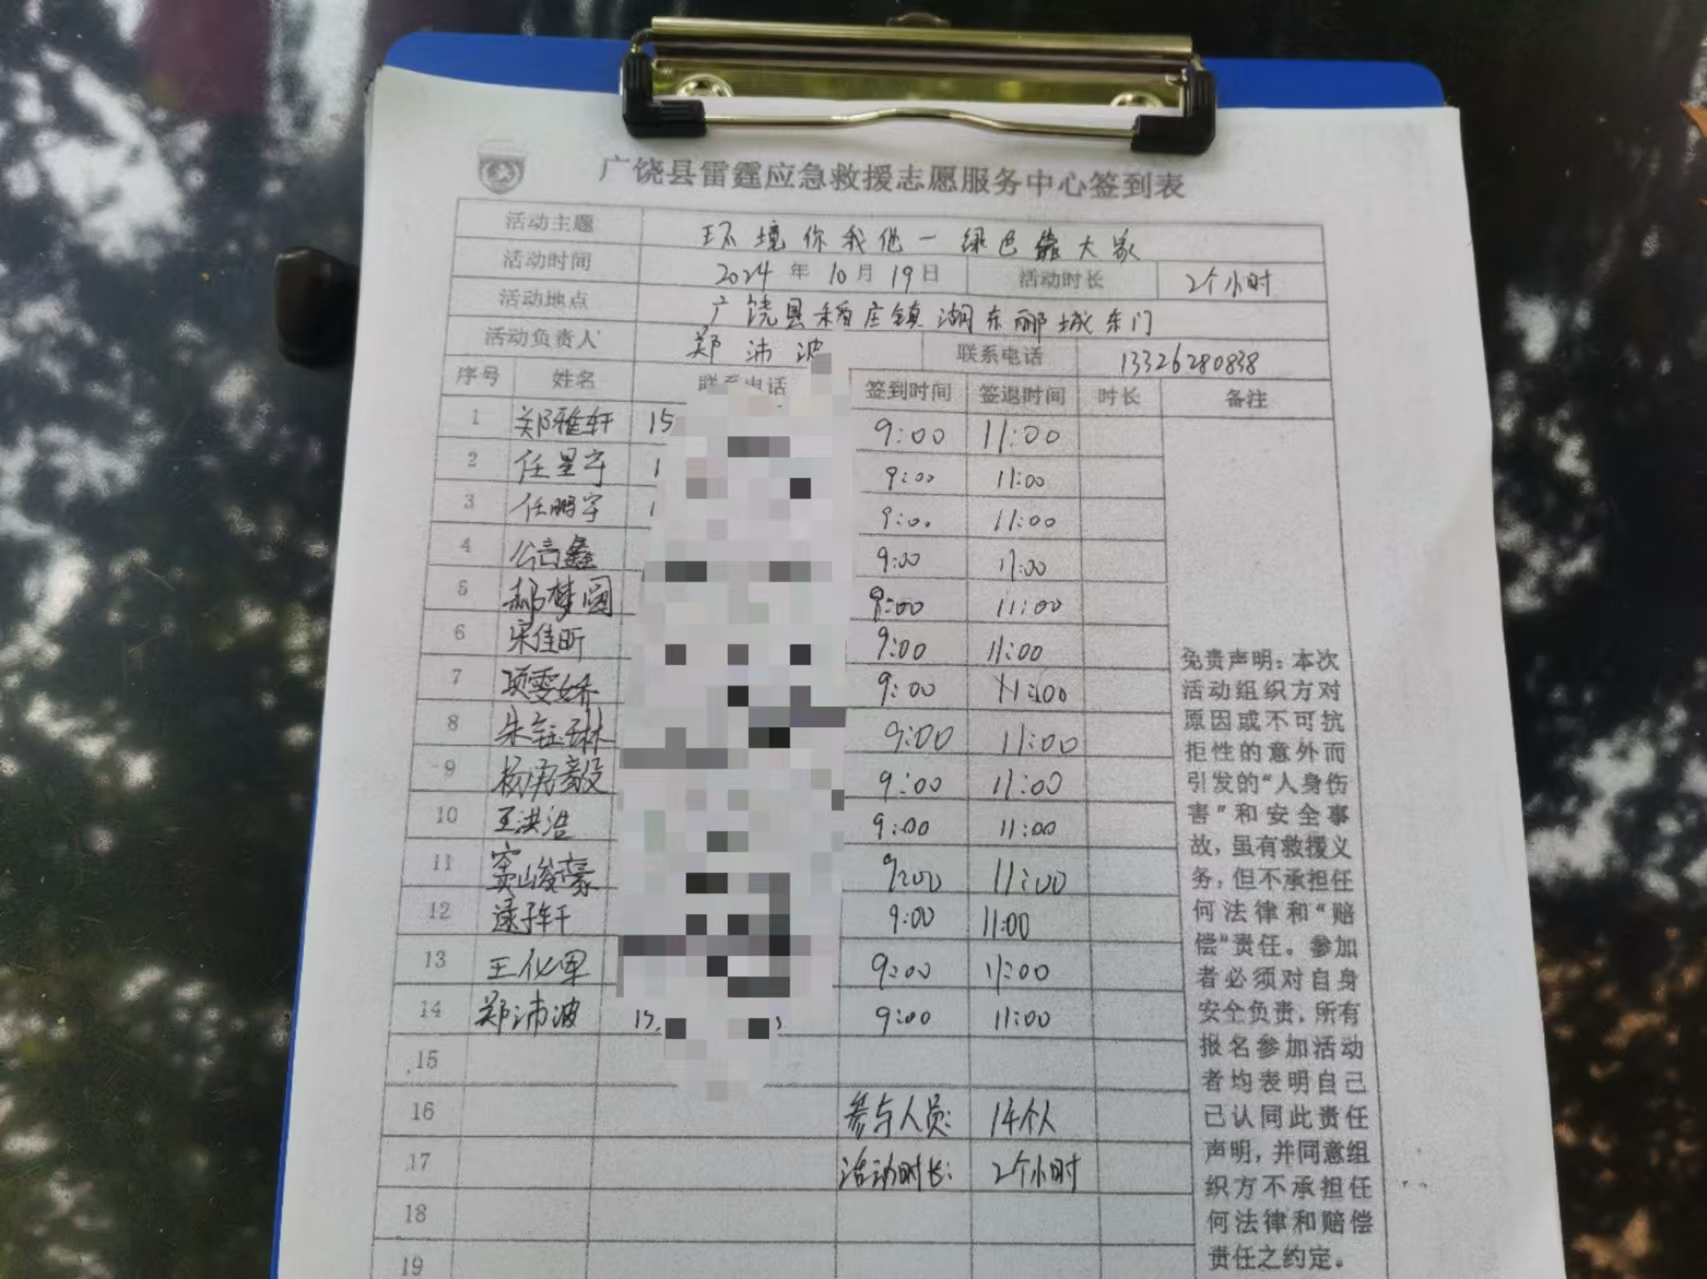 广饶县雷霆应急救援志愿服务中心签到表
活动主题 环境你我他一绿色靠大家
活动时间 2024年10月19日 活动时长 2个小时
活动地点 广饶县稻庄镇湖东郦城东门
活动负责人 郑沛波 联系电话 13326280838
序号 姓名 联系电话 签到时间 签退时间 时长 备注
1 郑雅轩 15 9:00 11:00
2 任星宇 1 9:00 11:00
3 任鹏宇 1 9:00 11:00
4 9:00 11:00
5 郝梦圆 9:00 11:00
6 宋佳昕 9:00 11:00
7 项雯娇 9:00 11:00
8 朱钰琳 9:00 11:00
9 9:00 11:00
10 王洪浩 9:00 11:00
11 窦峻豪 9:00 11:00
12 9:00 11:00
13 王化军 9:00 11:00
14 郑沛波 9:00 11:00
15
16 参与人员: 14个人
17 活动时长: 2个小时
18
19
免责声明:本次
活动组织方对
原因或不可抗
拒性的意外而
引发的“人身伤
害”和安全事
故,虽有救援义
务,但不承担任
何法律和“赔
偿”责任。参加
者必须对自身
安全负责,所有
报名参加活动
者均表明自己
已认同此责任
声明,并同意组
织方不承担任
何法律和赔偿
责任之约定。